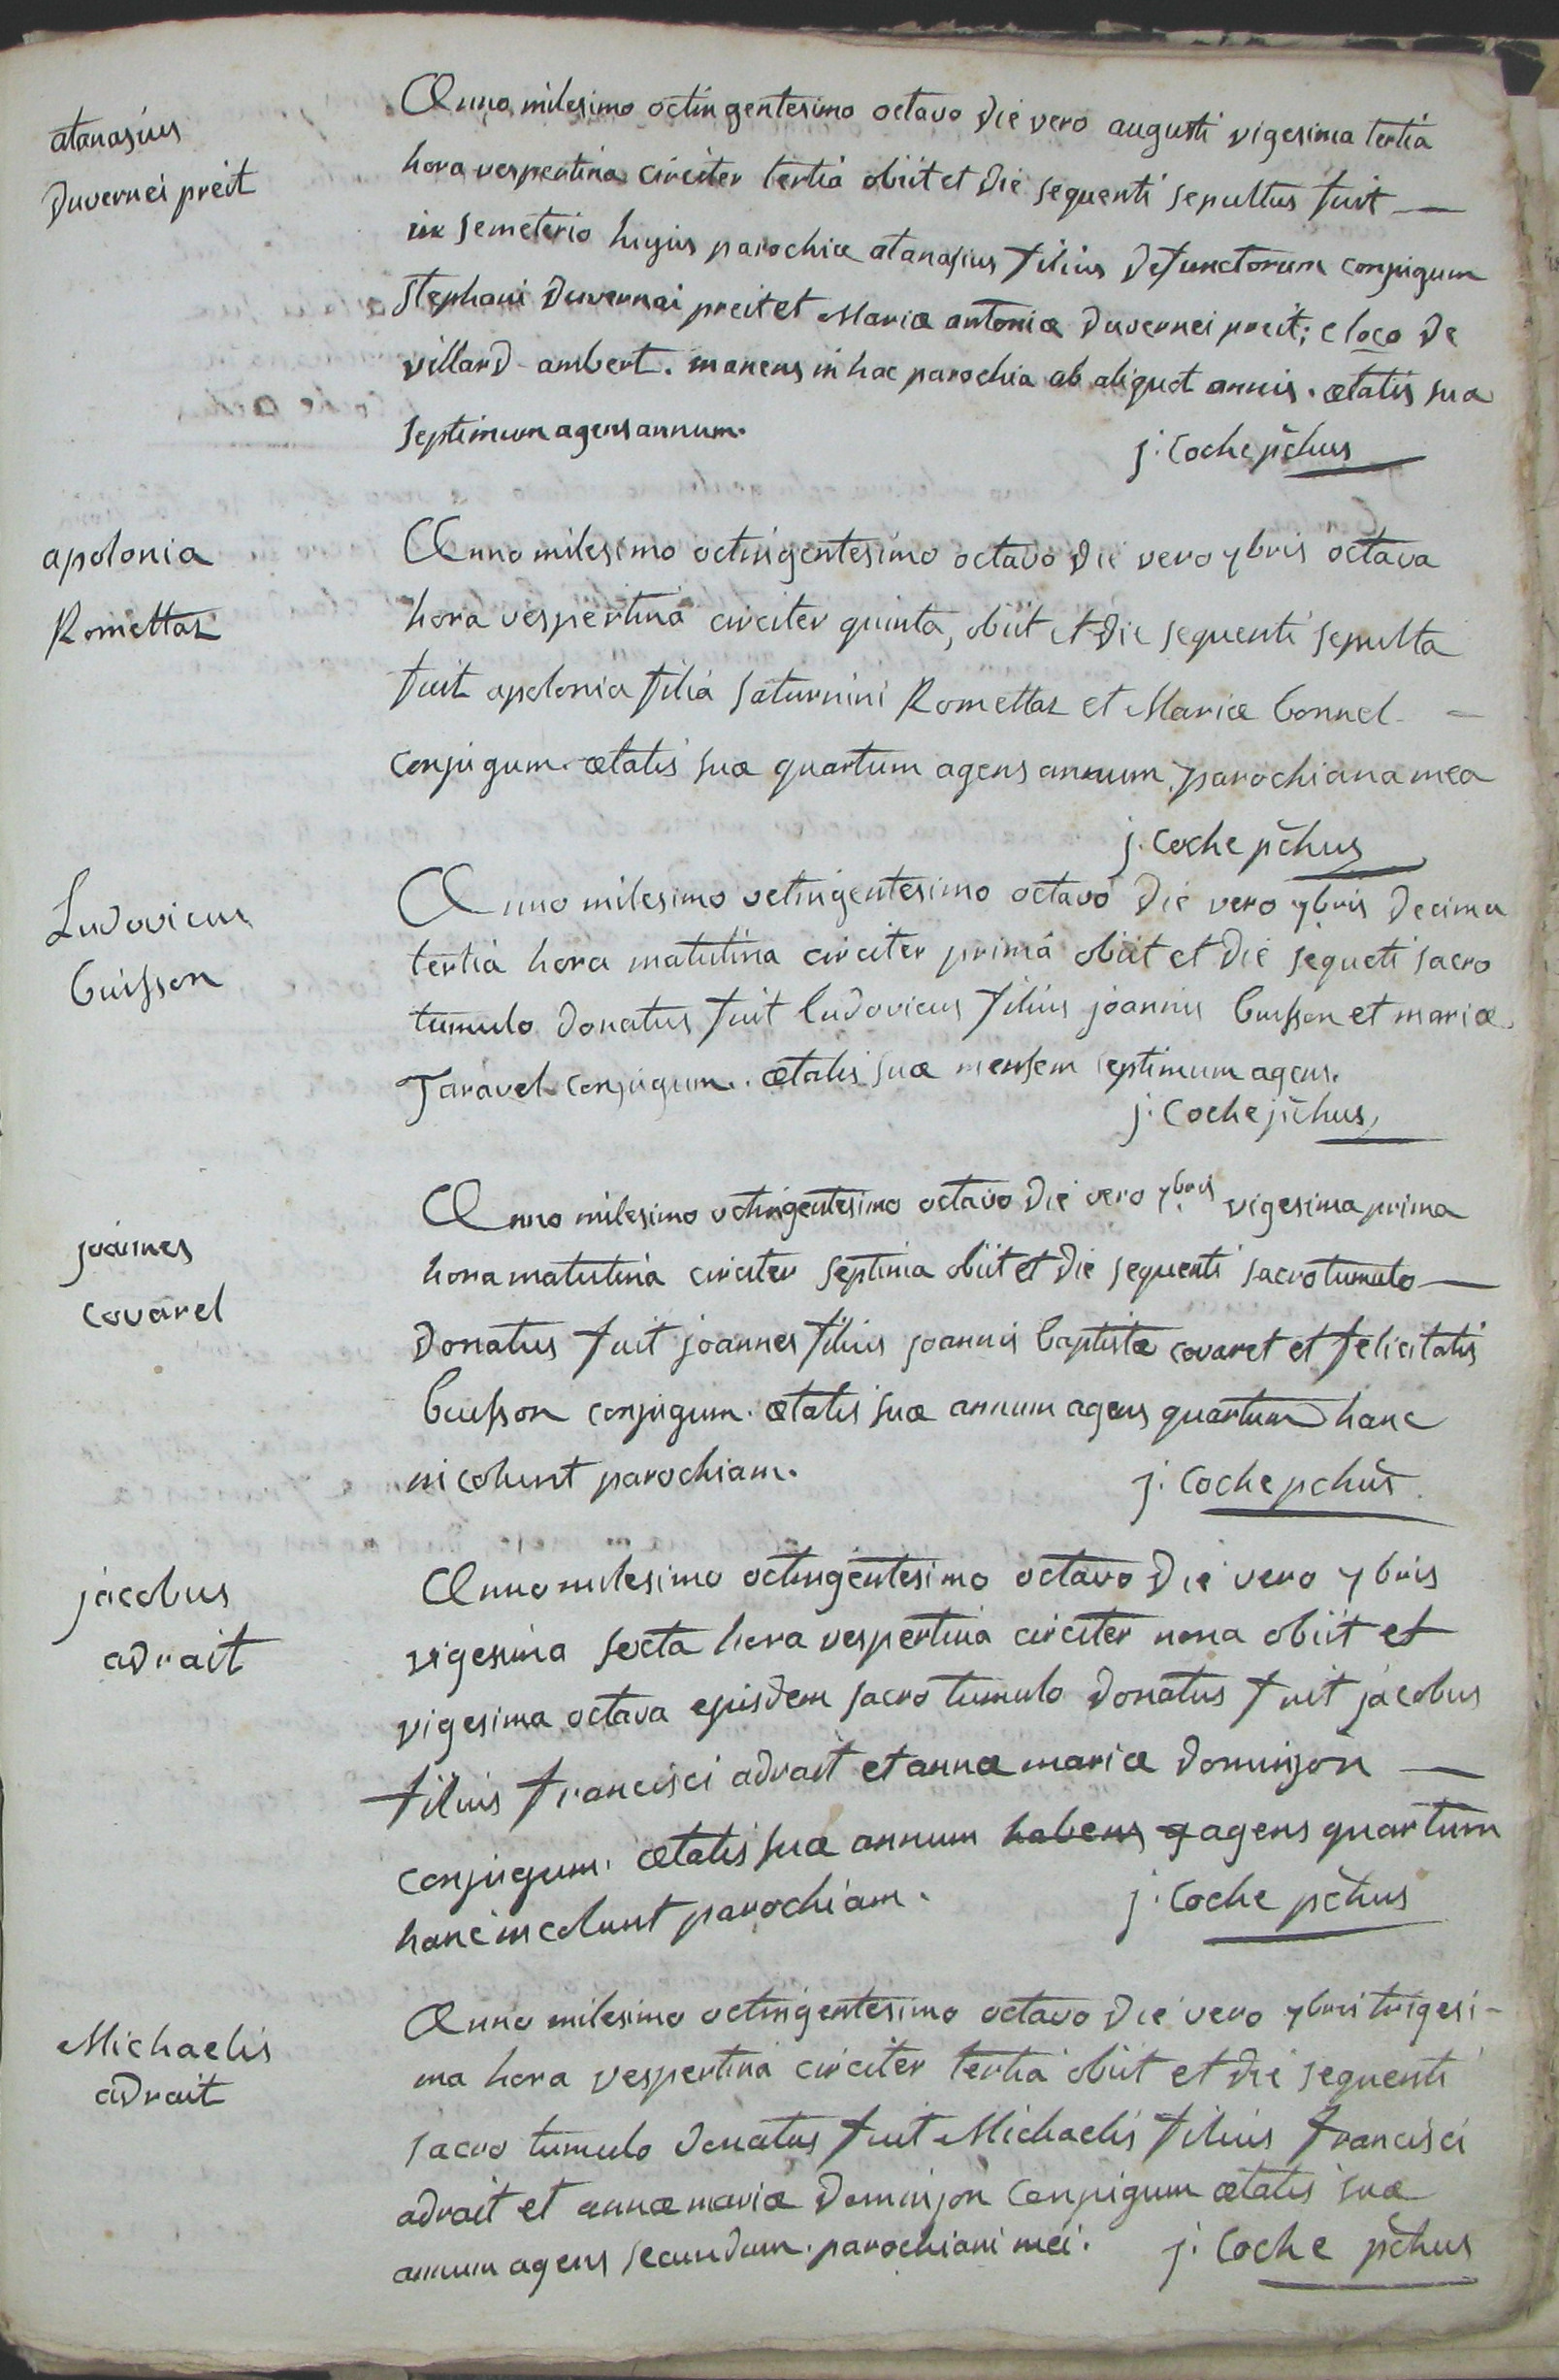 atanasius
Duvernei preit
Anno milesimo octingentesimo octavo die vero augusti vigesima tertia
hora vespertina circiter tertia obiit et die sequenti sepultus fuit —
in semeterio hujus parochiæ atanasius filius defunctorum conjugum
stephani Duvernai preit et Mariæ antoniæ Duvernei preit; e loco de
villard-ambert. manens in hac parochia ab aliquot annis. ætatis sua
septimum agens annum.
j. Coche pchus
apolonia
Romettaz
Anno milesimo octingentesimo octavo die vero 7bris octava
hora vespertina circiter quinta, obiit et die sequenti sepulta
fuit apolonia filia saturnini Romettaz et Mariæ bonnel —
conjugum. ætatis suæ quartum agens annum, parochiana mea
j. Coche pchus
Ludovicus
buisson
Anno milesimo octingentesimo octavo die vero 7bris decima
tertia hora matutina circiter prima obiit et die sequeti sacro
tumulo donatus fuit ludovicus filius joannis buisson et mariæ
Taravel conjugum. ætatis suæ mensem septimum agens.
j. Coche pchus
joannes
covarel
Anno milesimo octingentesimo octavo die vero 7.bris vigesima prima
hora matutina circiter septima obiit et die sequenti sacro tumulo —
donatus fuit joannes filius joannis baptistæ covaret et felicitatis
buisson conjugum. ætatis suæ annum agens quartum hanc
incolunt parochiam.
j. Coche pchus
jacobus
adrait
Anno milesimo octingentesimo octavo die vero 7bris
vigesima sexta hora vespertina circiter nona obiit et
vigesima octava ejusdem sacro tumulo donatus fuit jacobus
filius francisci adrait et annæ mariæ dominjon —
conjugum. ætatis suæ annum habens q agens quartum
hanc incolunt parochiam.
j. Coche pchus
Michaelis
adrait
Anno milesimo octingentesimo octavo die vero 7bris trigesi-
ma hora vespertina circiter tertia obiit et die sequenti
sacro tumulo donatus fuit Michaelis filius francisci
adrait et annæ mariæ dominjon conjugum ætatis suæ
annum agens secundum. parochiani mei.
j. Coche pchus